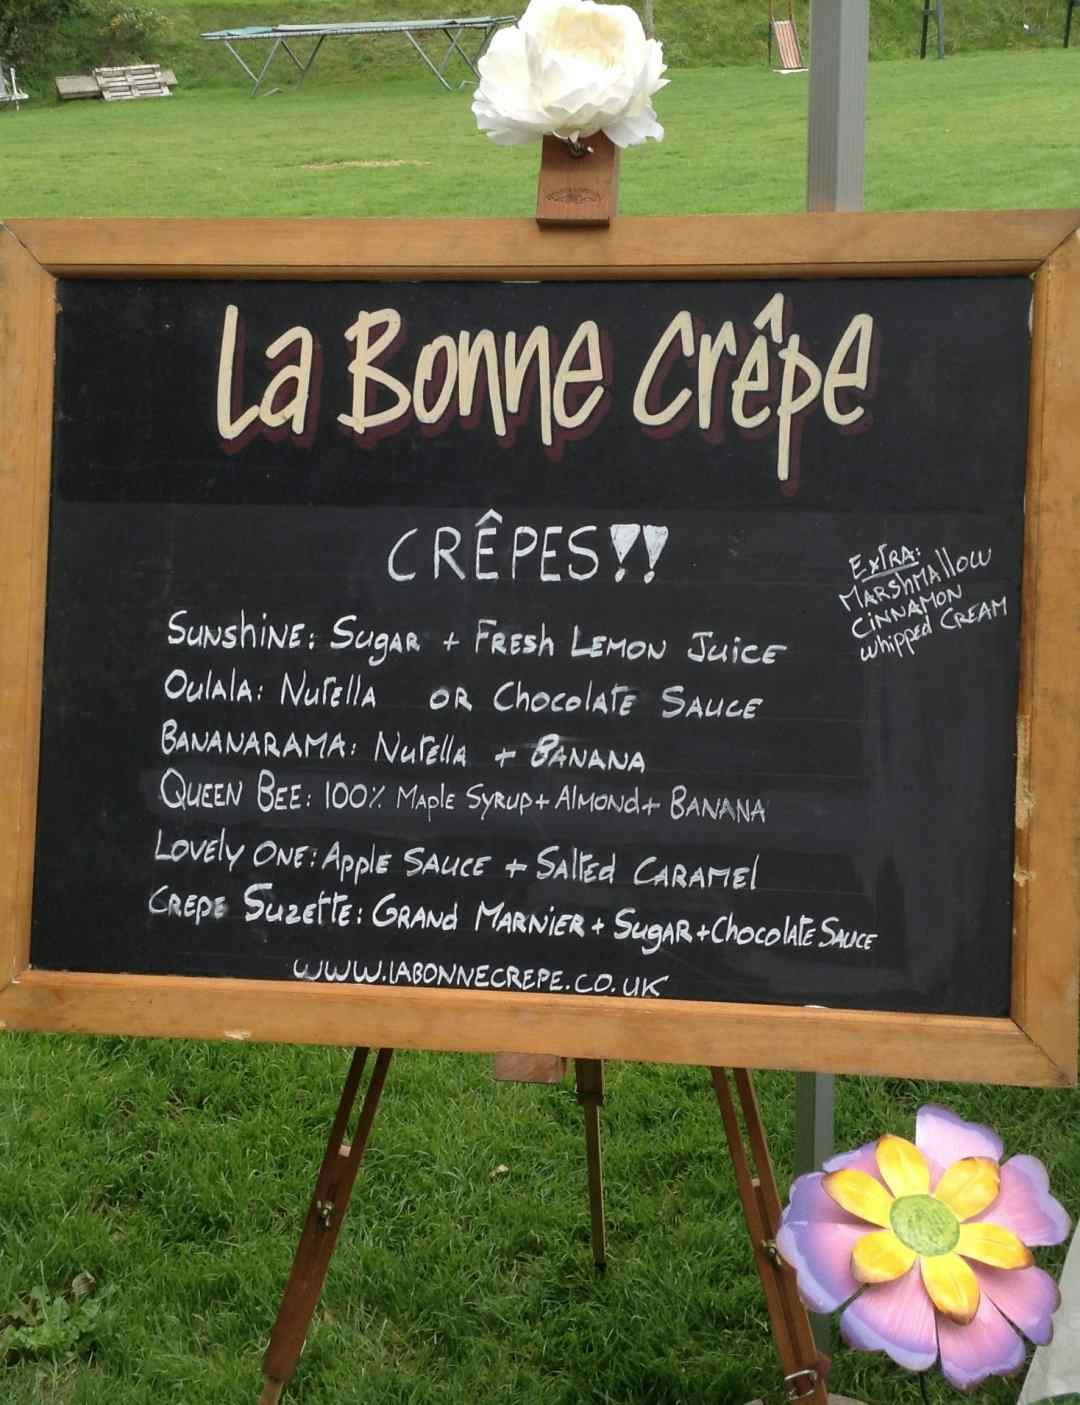 La Bonne Crêpe
CRÊPES!!
Extra:
Marshmallow
Cinnamon
whipped Cream
Sunshine: Sugar + Fresh Lemon Juice
Oulala: Nutella or Chocolate Sauce
Bananarama: Nutella + Banana
Queen Bee: 100% Maple Syrup + Almond + Banana
Lovely One: Apple Sauce + Salted Caramel
Crepe Suzette: Grand Marnier + Sugar + Chocolate Sauce
www.labonnecrepe.co.uk